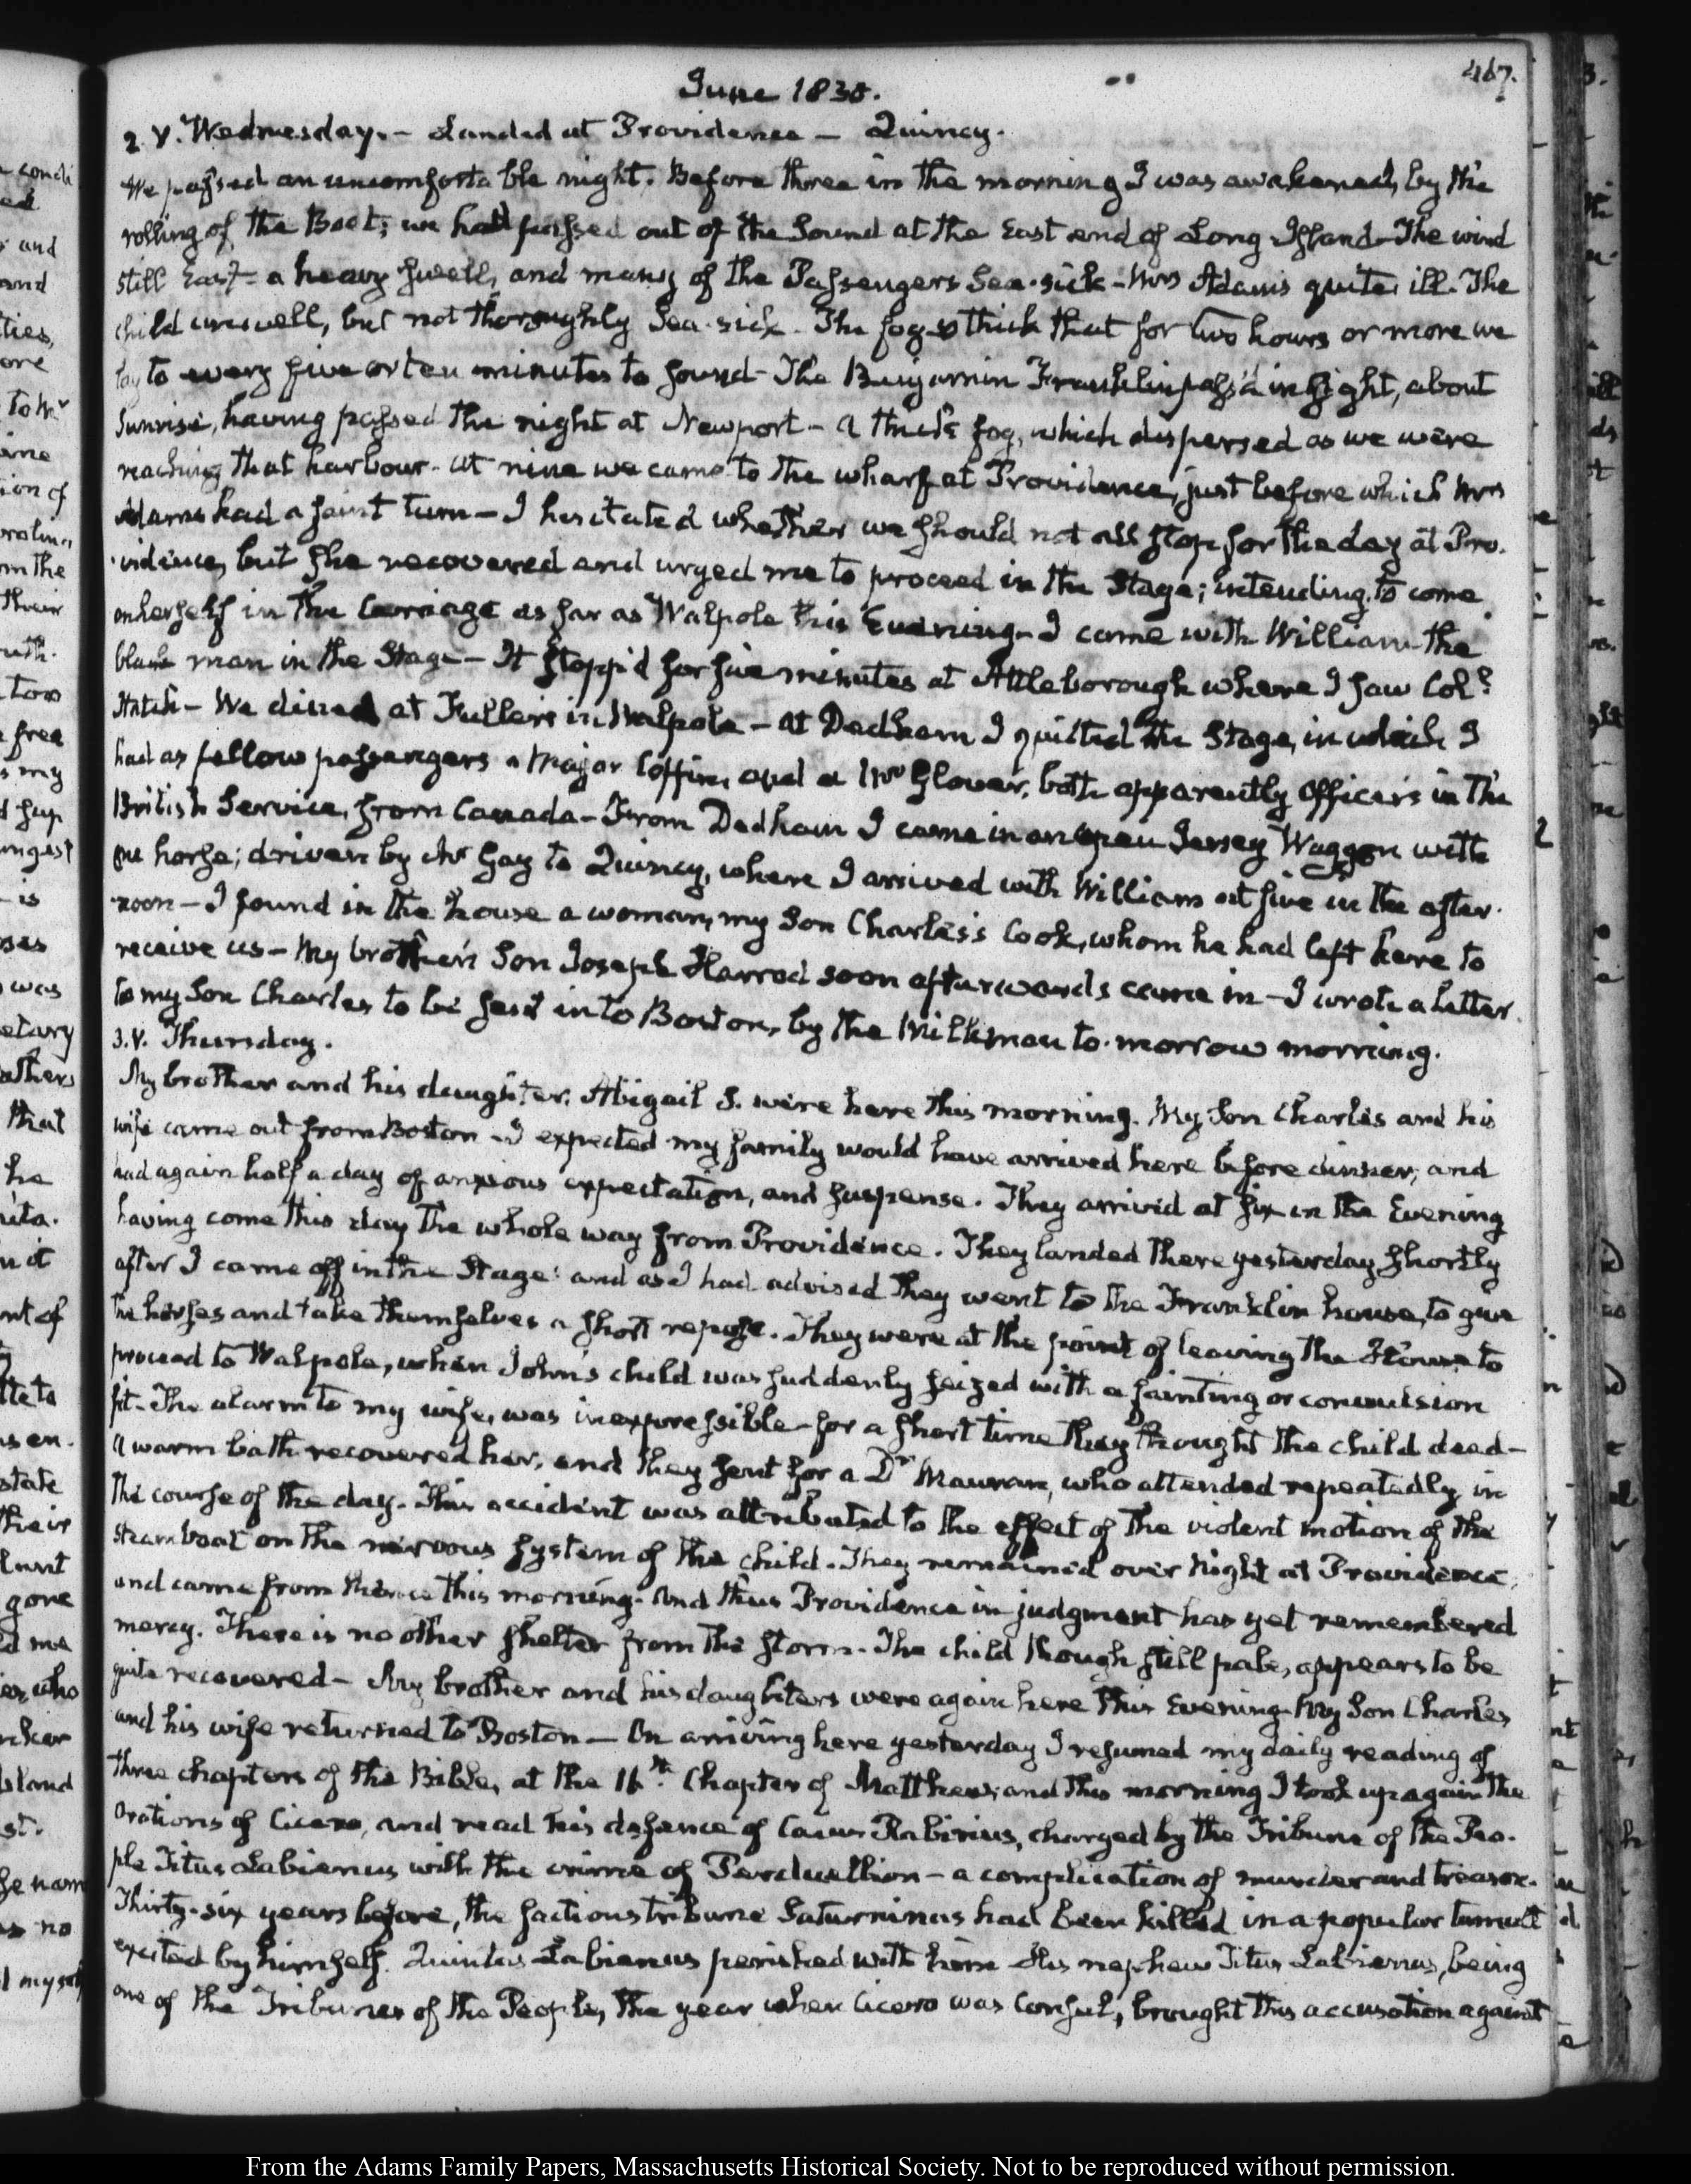 467.
June 1830.
2. V. Wednesday. - Landed at Providence - Quincy.
We passed an uncomfortable night. Before three in the morning I was awakened, by the
rolling of the Boat; we had passed out of the Sound at the East end of Long Island - The wind
still East - a heavy swell, and many of the Passengers Sea-sick - Mrs Adams quite ill. The
child unwell, but not thoroughly Sea-sick. The fog so thick that for two hours or more we
lay to every five or ten minutes to sound - The Benjamin Franklin pass'd in sight, about
Sunrise, having passed the night at Newport - A thick fog, which dispersed as we were
reaching that harbour - at nine we came to the wharf at Providence, just before which Mrs
Adams had a faint turn - I hesitated whether we should not all stop for the day at Pro-
vidence, but she recovered and urged me to proceed in the Stage; intending to come
on herself in the Carriage as far as Walpole this Evening - I came with William the
black man in the Stage - It stopp'd for five minutes at Attleborough where I saw Coll
Hatch - We dined at Fuller's in Walpole - At Dedham I quitted the Stage, in which I
had as fellow passengers a Major Coffin, and a Mr Glover, both apparently Officers in the
British Service, from Canada - From Dedham I came in an open Jersey Waggon with
one horse; driven by Mr Gay to Quincy, where I arrived with William at five in the after-
noon - I found in the house a woman, my Son Charles's Cook, whom he had left here to
receive us - My brother's Son Joseph Harrod soon afterwards came in - I wrote a letter
to my Son Charles to be sent into Boston, by the Milkman to-morrow morning.
3. V. Thursday.
My brother and his daughter, Abigail S. were here this morning. My Son Charles and his
wife came out from Boston - I expected my family would have arrived here before dinner, and
had again half a day of anxious expectation, and suspense. They arrived at six in the Evening
having come this day the whole way from Providence. They landed there yesterday shortly
after I came off in the Stage: and as I had advised they went to the Franklin house, to give
the horses and take themselves a short repose. They were at the point of leaving the House to
proceed to Walpole, when John's child was suddenly seized with a fainting or convulsion
fit - The alarm to my wife, was inexpressible - for a short time they thought the child dead -
A warm bath recovered her, and they sent for a Dr Mauran, who attended repeatedly in
the course of the day. This accident was attributed to the effect of the violent motion of the
Steam boat on the nervous system of the child. They remained over Night at Providence,
and came from thence this morning - And thus Providence in judgment has yet remembered
mercy. There is no other shelter from the storm - The child though still pale, appears to be
quite recovered - My brother and his daughters were again here this Evening. My Son Charles
and his wife returned to Boston - On arriving here yesterday I resumed my daily reading of
three chapters of the Bible, at the 16th Chapter of Matthew; and this morning I took up again the
Orations of Cicero, and read his defence of Caius Rabirius, charged by the Tribune of the Peo-
ple Titus Labienus with the crime of Perduellion - a complication of murder and treason.
Thirty-six years before, the factious tribune Saturninus had been killed in a popular tumult
excited by himself. Quintus Labienus perished with him - His nephew Titus Labienus, being
one of the Tribunes of the People, the year when Cicero was Consul, brought this accusation against
From the Adams Family Papers, Massachusetts Historical Society. Not to be reproduced without permission.